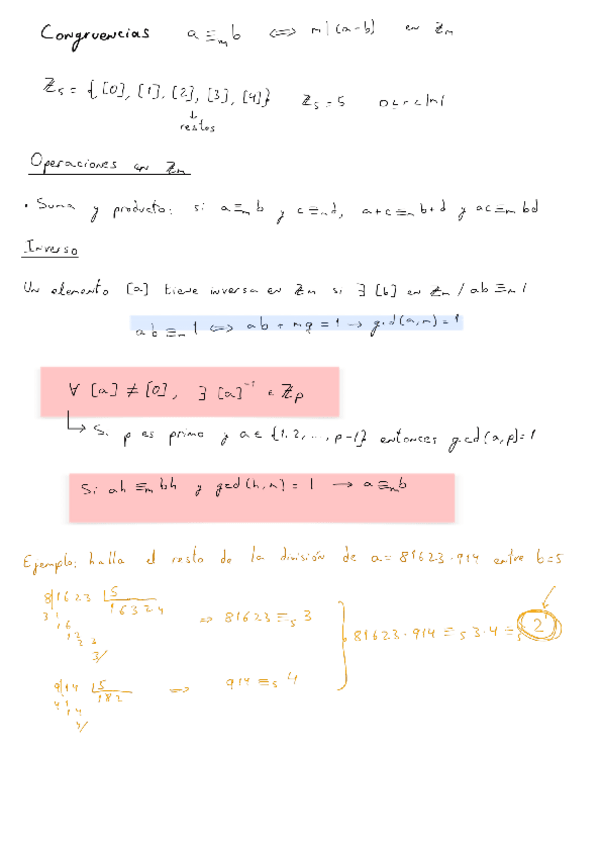 Congruencias a ≡ₘ b ⟺ m | (a-b) en ℤₘ
ℤ₅ = { [0], [1], [2], [3], [4] } ℤ₅ = 5
↓
restos
Operaciones en ℤₘ
· Suma y producto: si a ≡ₘ b y c ≡ₘ d, a+c ≡ₘ b+d y ac ≡ₘ bd
Inverso
Un elemento [a] tiene inversa en ℤₘ si ∃ [b] en ℤₘ / ab ≡ₘ 1
ab ≡ₘ 1 ⟺ ab + mq = 1 → gcd(a,m) = 1
∀ [a] ≠ [0], ∃ [a]⁻¹ ∈ ℤₚ
↳ Si p es primo y a ∈ {1, 2, ..., p-1} entonces gcd(a,p)=1
Si ah ≡ₘ bh y gcd(h,m) = 1 → a ≡ₘ b
Ejemplo: halla el resto de la división de a = 81623·914 entre b=5
81623 |5
31 16324
16
12
23
3/
⇒ 81623 ≡₅ 3
914 |5
41 182
14
4/
⇒ 914 ≡₅ 4
81623·914 ≡₅ 3·4 ≡₅ 2